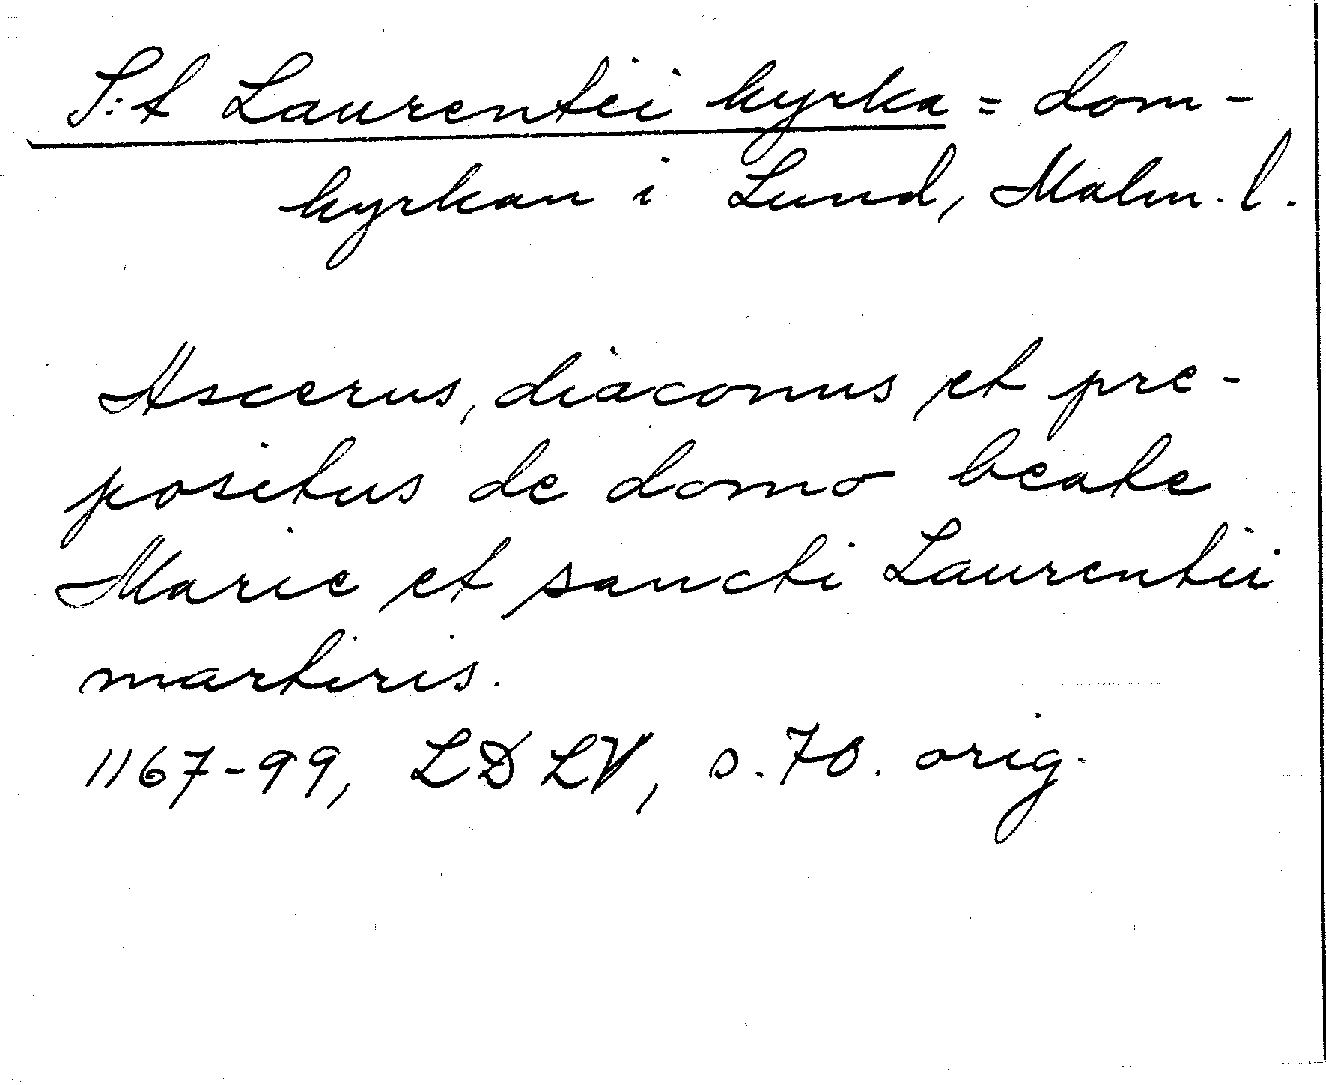 S:t Laurentii kyrka = dom-
kyrkan i Lund, Malm. l.
Ascerus, diaconus et pre-
positus de domo beate
Marie et sancti Laurentii
martiris.
1167-99, LDLV, s. 70. orig.